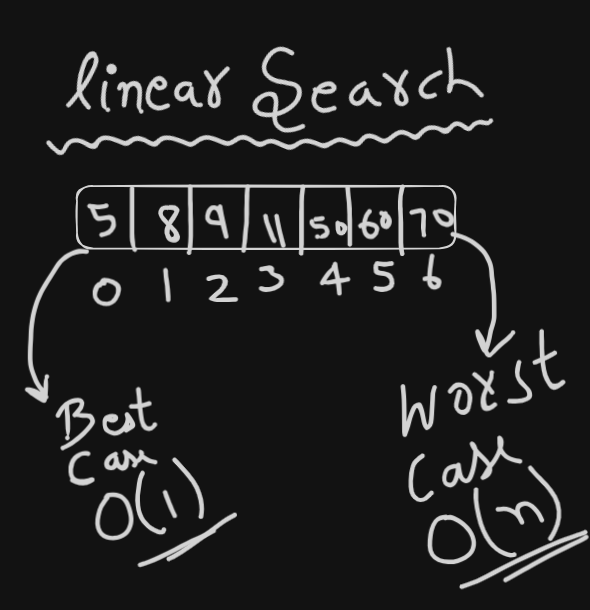 linear Search
5 8 9 11 50 60 70
0 1 2 3 4 5 6
Best
Case
O(1)
Worst
Case
O(n)